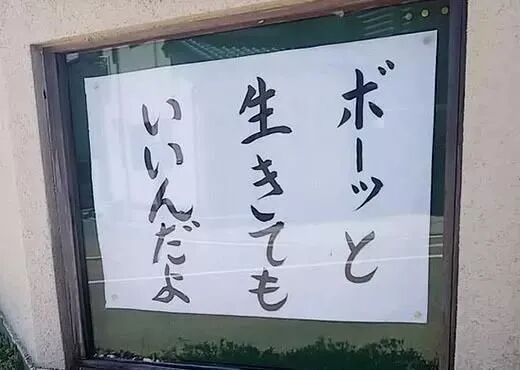 ボーッと
生きても
いいんだよ